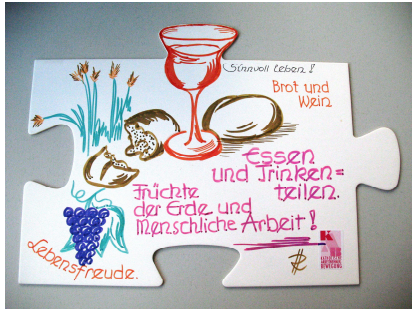 Sinnvoll leben!
Brot und
Wein
Essen
und Trinken=
teilen.
Früchte
der Erde und
Menschliche Arbeit!
Lebensfreude.
BEWEGUNG